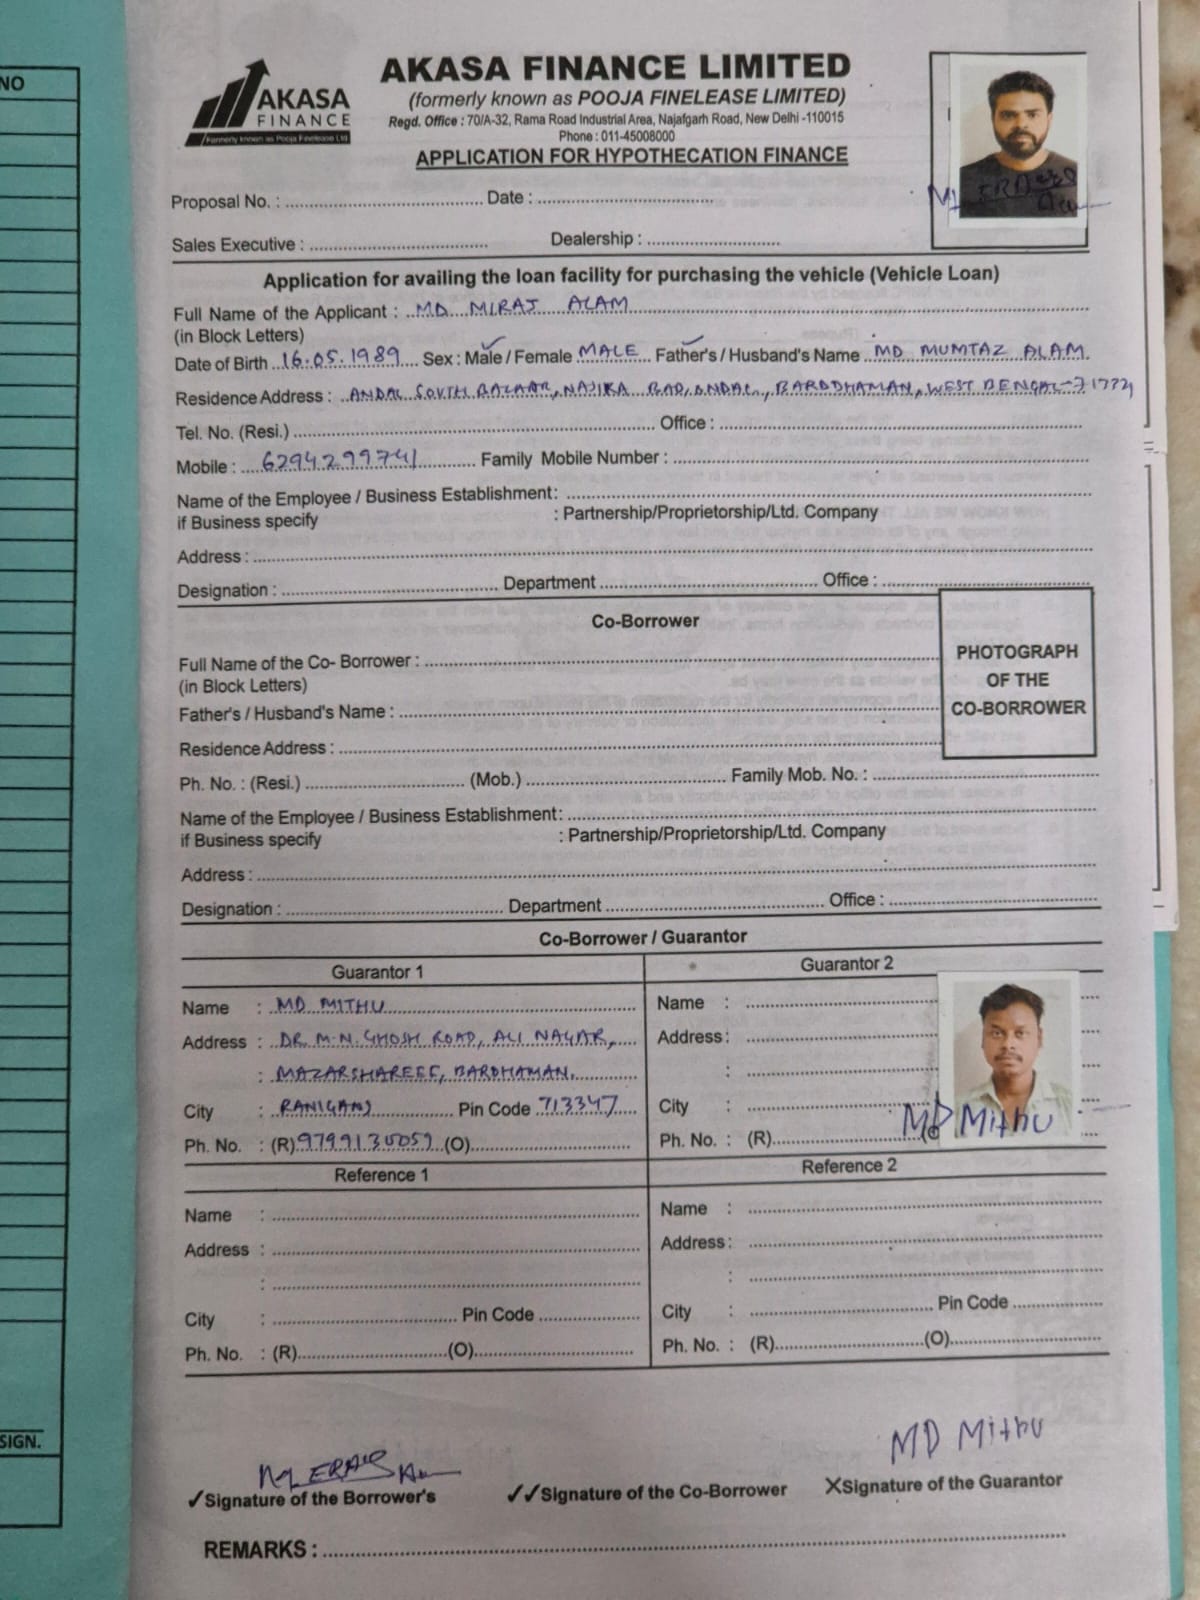 NO
AKASA
FINANCE
Formerly known as Pooja Finelease Ltd
AKASA FINANCE LIMITED
(formerly known as POOJA FINELEASE LIMITED)
Regd. Office : 70/A-32, Rama Road Industrial Area, Najafgarh Road, New Delhi -110015
Phone : 011-45008000
APPLICATION FOR HYPOTHECATION FINANCE
Proposal No. : Date :
Sales Executive : Dealership :
Application for availing the loan facility for purchasing the vehicle (Vehicle Loan)
Full Name of the Applicant : MD MIRAJ ALAM
(in Block Letters)
Date of Birth 16.05.1989 Sex : Male / Female MALE Father's / Husband's Name MD MUMTAZ ALAM
Residence Address : ANDAL SOUTH BAZAAR, NAJIRA BAD, ANDAL, BARDDHAMAN, WEST BENGAL-
Tel. No. (Resi.) Office :
Mobile : 6294299741 Family Mobile Number :
Name of the Employee / Business Establishment:
if Business specify : Partnership/Proprietorship/Ltd. Company
Address :
Designation : Department Office :
Co-Borrower
Full Name of the Co- Borrower :
(in Block Letters)
PHOTOGRAPH
OF THE
CO-BORROWER
Father's / Husband's Name :
Residence Address :
Ph. No. : (Resi.) (Mob.) Family Mob. No. :
Name of the Employee / Business Establishment:
if Business specify : Partnership/Proprietorship/Ltd. Company
Address :
Designation : Department Office :
Co-Borrower / Guarantor
Guarantor 1 Guarantor 2
Name : MD MITHU Name :
Address : DR. M.N. GHOSH ROAD, ALI NAGAR, Address :
: MAZARSHAREEF, BARDHAMAN. :
City : RANIGANJ Pin Code 713347 City :
Ph. No. : (R) 9799130059 (O) Ph. No. : (R)
MD Mithu
Reference 1 Reference 2
Name : Name :
Address : Address :
: :
City : Pin Code City : Pin Code
Ph. No. : (R) (O) Ph. No. : (R) (O)
SIGN.
MD Mithu
✓Signature of the Borrower's ✓✓Signature of the Co-Borrower XSignature of the Guarantor
REMARKS :